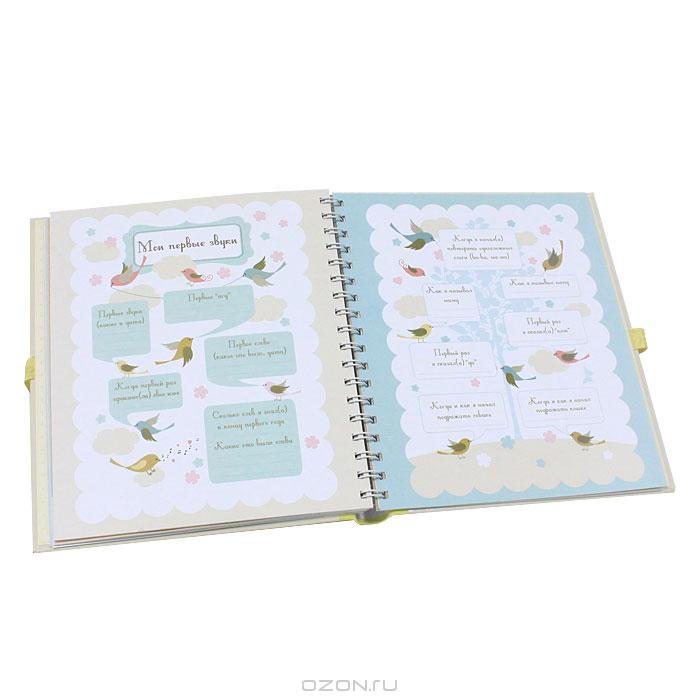 Мои первые звуки
Первые звуки
(какие и дата)
Первые "агу"
Первые слова
(какие это были, дата)
Когда первый раз
произнес(ла) свое имя
Сколько слов я знал(а)
к концу первого года
Какие это были слова
Когда я начал(а)
повторять односложные
слоги (ба-ба, ма-ма)
Как я называл
маму
Как я называл папу
Первый раз
я сказал(а) "да"
Первый раз
я сказал(а) "нет"
Когда и как я начал
подражать собаке
Когда и как я начал
подражать кошке
OZON.ru